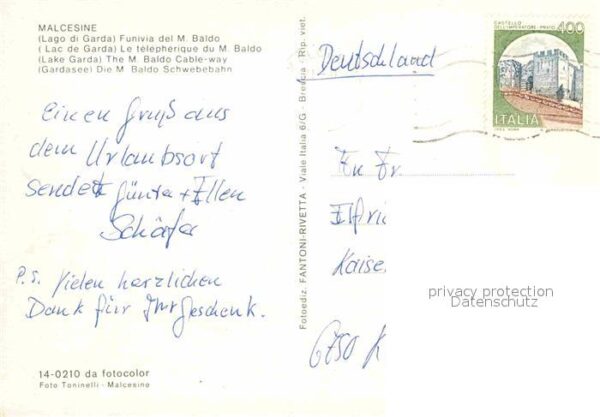 MALCESINE
(Lago di Garda) Funivia del M. Baldo
( Lac de Garda) Le télépherique du M. Baldo
(Lake Garda) The M. Baldo Cable-way
(Gardasee) Die M. Baldo Schwebebahn
Einen Gruß aus
dem Urlaubsort
sendet Günter + Ellen
Schäfer
P.S. Vielen herzlichen
Dank für Ihr Geschenk.
14-0210 da fotocolor
Foto Toninelli - Malcesine
Fotoediz. FANTONI-RIVETTA - Viale Italia 6/G - Brescia - Rip. viet.
CASTELLO DELL'IMPERATORE - PRATO
400
ITALIA
Deutschland
An Fr
Elfri
Kaise
6750 K
privacy protection
Datenschutz